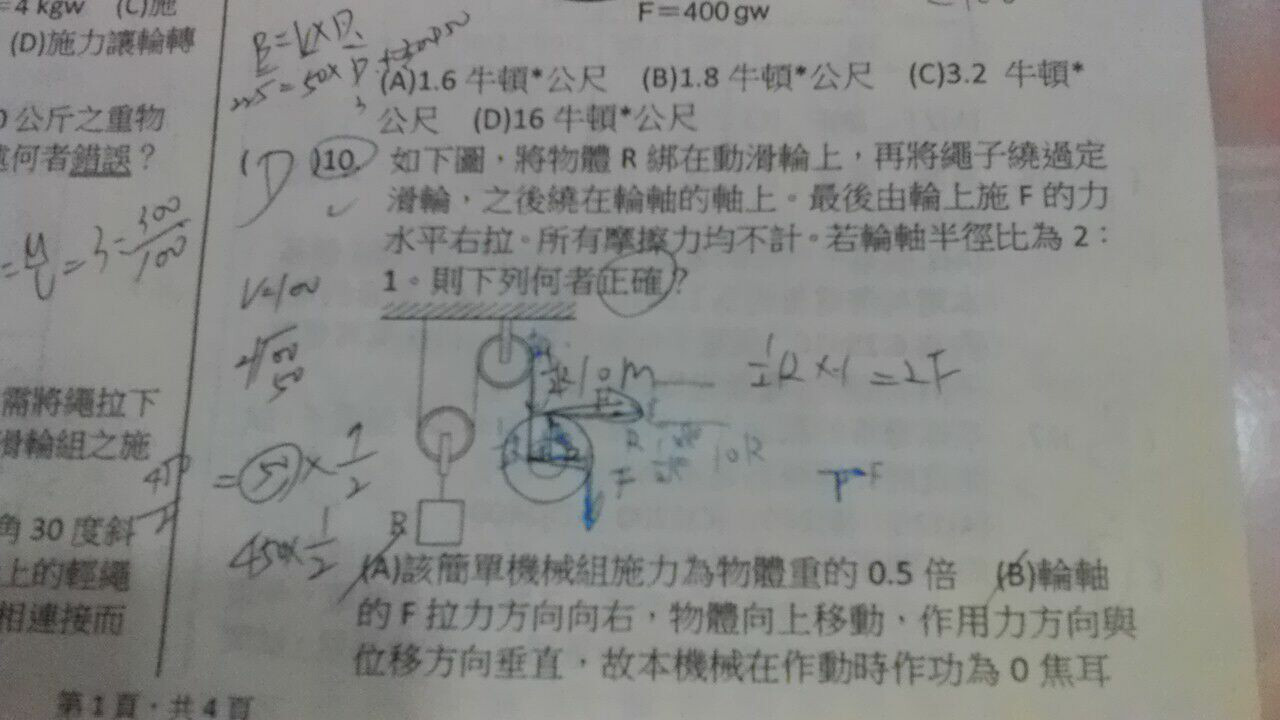 =4 kgw (C)施
(D)施力讓輪轉
公斤之重物
何者錯誤？
= 3 = 300/100
需將繩拉下
滑輪組之施
角 30 度斜
上的輕繩
相連接而
第 1 頁，共 4 頁
F=400 gw
(A)1.6 牛頓*公尺 (B)1.8 牛頓*公尺 (C)3.2 牛頓*
公尺 (D)16 牛頓*公尺
(D)10. 如下圖，將物體 R 綁在動滑輪上，再將繩子繞過定
滑輪，之後繞在輪軸的軸上。最後由輪上施 F 的力
水平右拉。所有摩擦力均不計。若輪軸半徑比為 2：
1。則下列何者正確？
V=100
50
1/2 R × 1 = 2F
10R
F
F
R
450 × 1/2
(A)該簡單機械組施力為物體重的 0.5 倍 (B)輪軸
的 F 拉力方向向右，物體向上移動，作用力方向與
位移方向垂直，故本機械在作動時作功為 0 焦耳